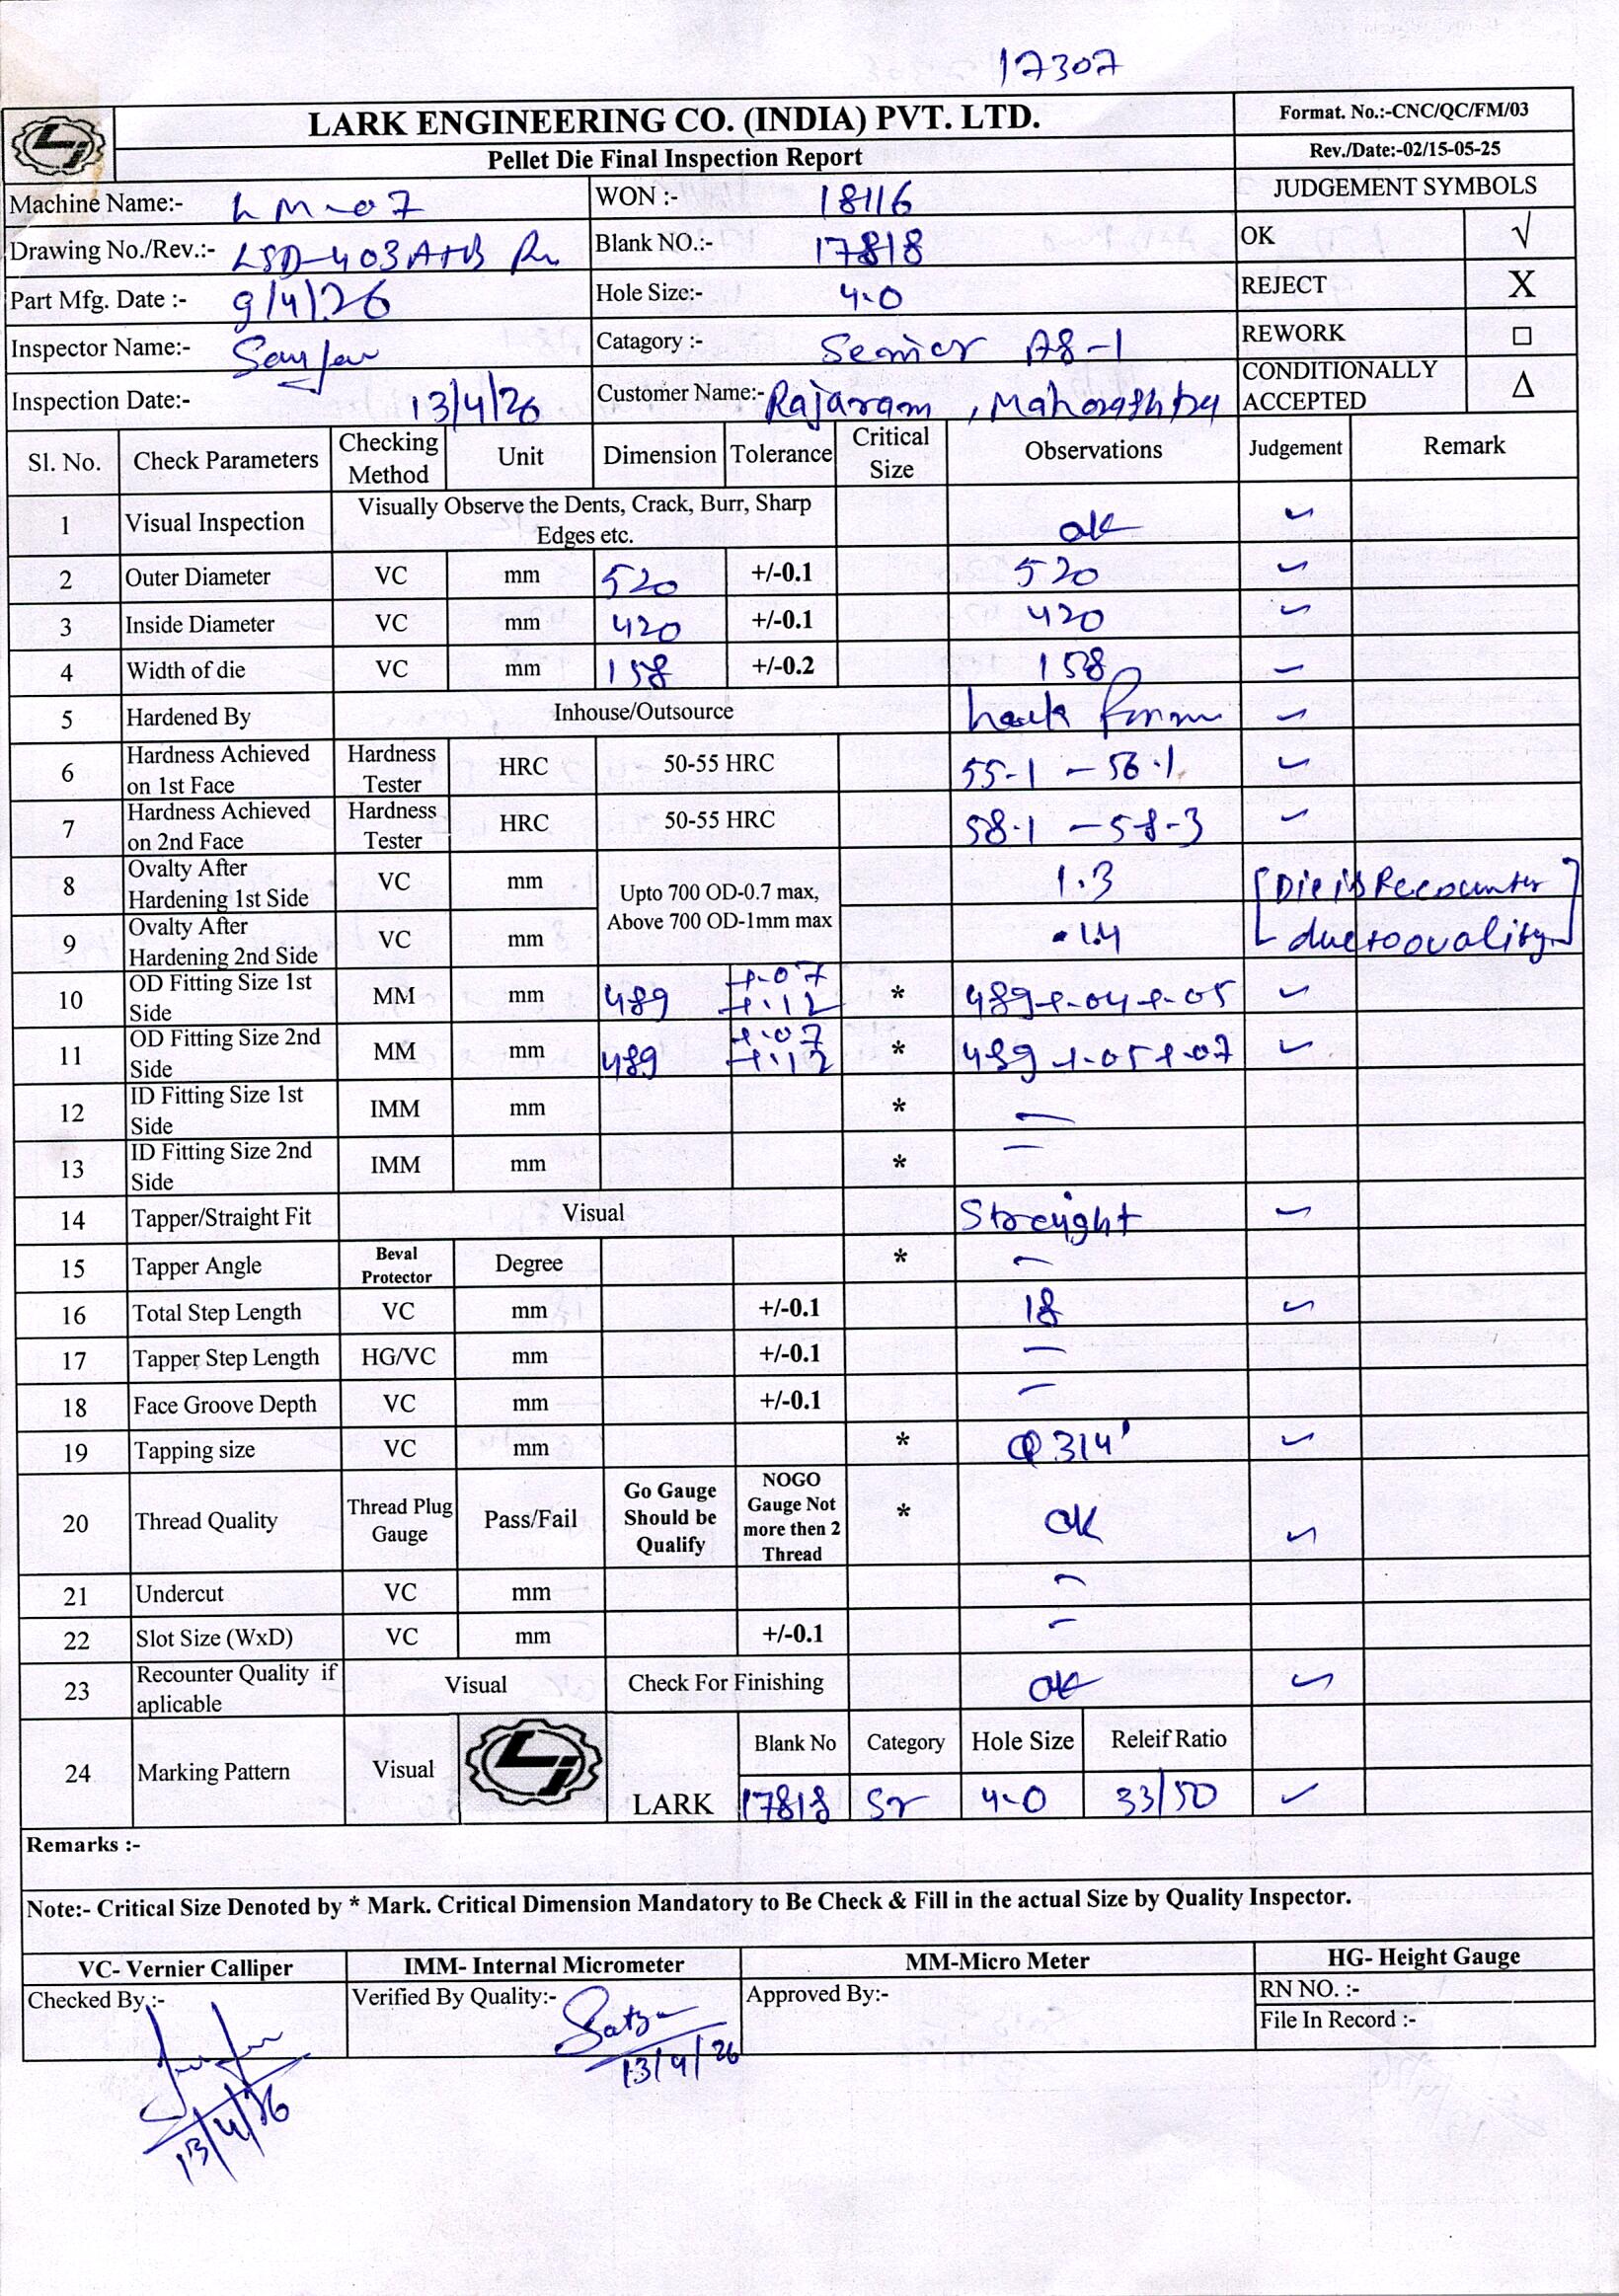 17307
LARK ENGINEERING CO. (INDIA) PVT. LTD.
Format. No.:-CNC/QC/FM/03
Pellet Die Final Inspection Report
Rev./Date:-02/15-05-25
Machine Name:- LM-07
WON :- 18116
JUDGEMENT SYMBOLS
Drawing No./Rev.:- LSD-403A+B
Blank NO.:- 17818
OK √
Part Mfg. Date :- 9/4/26
Hole Size:- 4.0
REJECT X
Inspector Name:-
Catagory :- Senior AS-1
REWORK □
Inspection Date:- 13/4/26
Customer Name:- Rajaram, Maharashtra
CONDITIONALLY ACCEPTED Δ
Sl. No. Check Parameters Checking Method Unit Dimension Tolerance Critical Size Observations Judgement Remark
1 Visual Inspection Visually Observe the Dents, Crack, Burr, Sharp Edges etc. ok ✓
2 Outer Diameter VC mm 520 +/-0.1 520 ✓
3 Inside Diameter VC mm 420 +/-0.1 420 ✓
4 Width of die VC mm 158 +/-0.2 158 ✓
5 Hardened By Inhouse/Outsource ✓
6 Hardness Achieved on 1st Face Hardness Tester HRC 50-55 HRC 55-1 - 56.1 ✓
7 Hardness Achieved on 2nd Face Hardness Tester HRC 50-55 HRC 58.1 - 58-3 ✓
8 Ovalty After Hardening 1st Side VC mm Upto 700 OD-0.7 max, Above 700 OD-1mm max 1.3 [Die is Recounter
9 Ovalty After Hardening 2nd Side VC mm 1.4 due to ovality]
10 OD Fitting Size 1st Side MM mm 489 +.07 +.12 * 489+.04+.05 ✓
11 OD Fitting Size 2nd Side MM mm 489 +.07 +.12 * 489+.05+.07 ✓
12 ID Fitting Size 1st Side IMM mm * —
13 ID Fitting Size 2nd Side IMM mm * —
14 Tapper/Straight Fit Visual Straight ✓
15 Tapper Angle Beval Protector Degree * —
16 Total Step Length VC mm +/-0.1 18 ✓
17 Tapper Step Length HG/VC mm +/-0.1 —
18 Face Groove Depth VC mm +/-0.1 —
19 Tapping size VC mm * 3/4' ✓
20 Thread Quality Thread Plug Gauge Pass/Fail Go Gauge Should be Qualify NOGO Gauge Not more then 2 Thread * ok ✓
21 Undercut VC mm —
22 Slot Size (WxD) VC mm +/-0.1 —
23 Recounter Quality if aplicable Visual Check For Finishing ok ✓
24 Marking Pattern Visual LARK Blank No Category Hole Size Releif Ratio
17818 Sr 4.0 33/50 ✓
Remarks :-
Note:- Critical Size Denoted by * Mark. Critical Dimension Mandatory to Be Check & Fill in the actual Size by Quality Inspector.
VC- Vernier Calliper IMM- Internal Micrometer MM-Micro Meter HG- Height Gauge
Checked By :- Verified By Quality:- Approved By:- RN NO. :-
File In Record :-
13/4/26
13/4/26